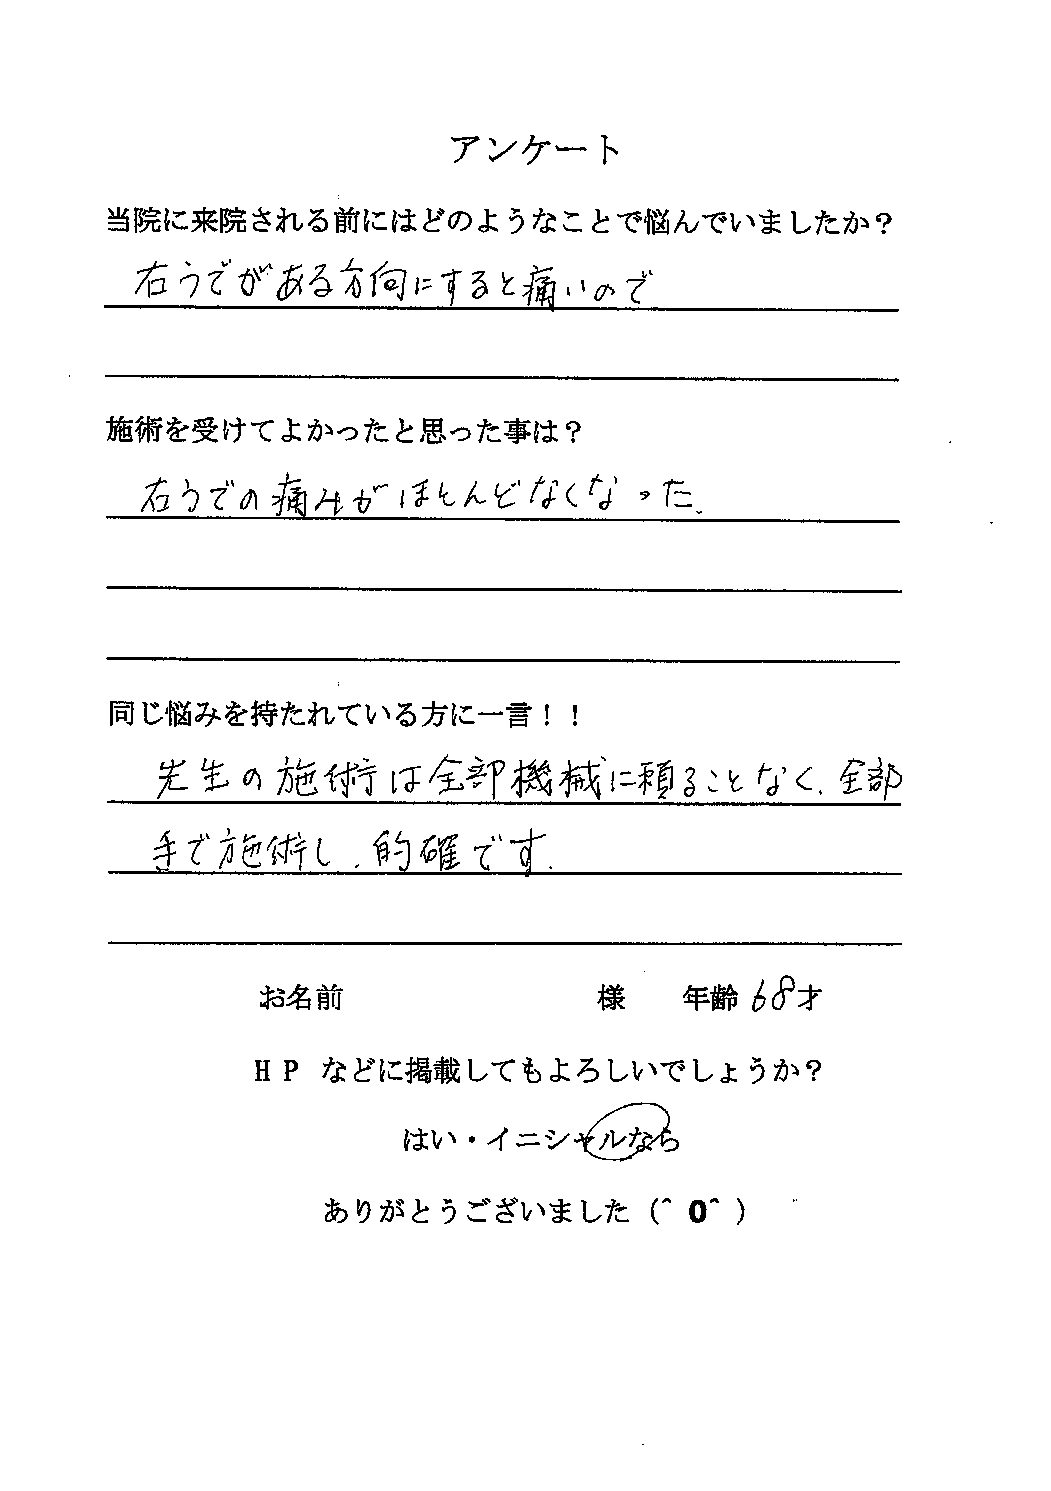 アンケート
当院に来院される前にはどのようなことで悩んでいましたか？
右うでがある方向にすると痛いので
施術を受けてよかったと思った事は？
右うでの痛みがほとんどなくなった.
同じ悩みを持たれている方に一言！！
先生の施術は全部機械に頼ることなく、全部
手で施術し、的確です.
お名前 様 年齢 68才
HP などに掲載してもよろしいでしょうか？
はい・イニシャルなら
ありがとうございました（＾０＾）